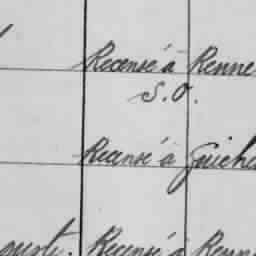 Recensé à Renne
S.O.
Recensé à Guiche
guste. Recensé à Renn